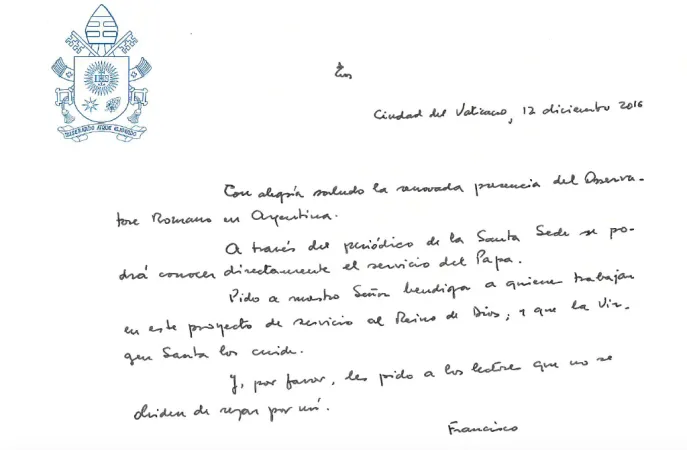 Ciudad del Vaticano, 12 diciembre 2016
Con alegría saludo la renovada presencia del Osserva-
tore Romano en Argentina.
A través del periódico de la Santa Sede se po-
drá conocer directamente el servicio del Papa.
Pido a nuestro Señor bendiga a quienes trabajan
en este proyecto de servicio al Reino de Dios; y que la Vir-
gen Santa los cuide.
Y, por favor, les pido a los lectores que no se
olviden de rezar por mí.
Francisco